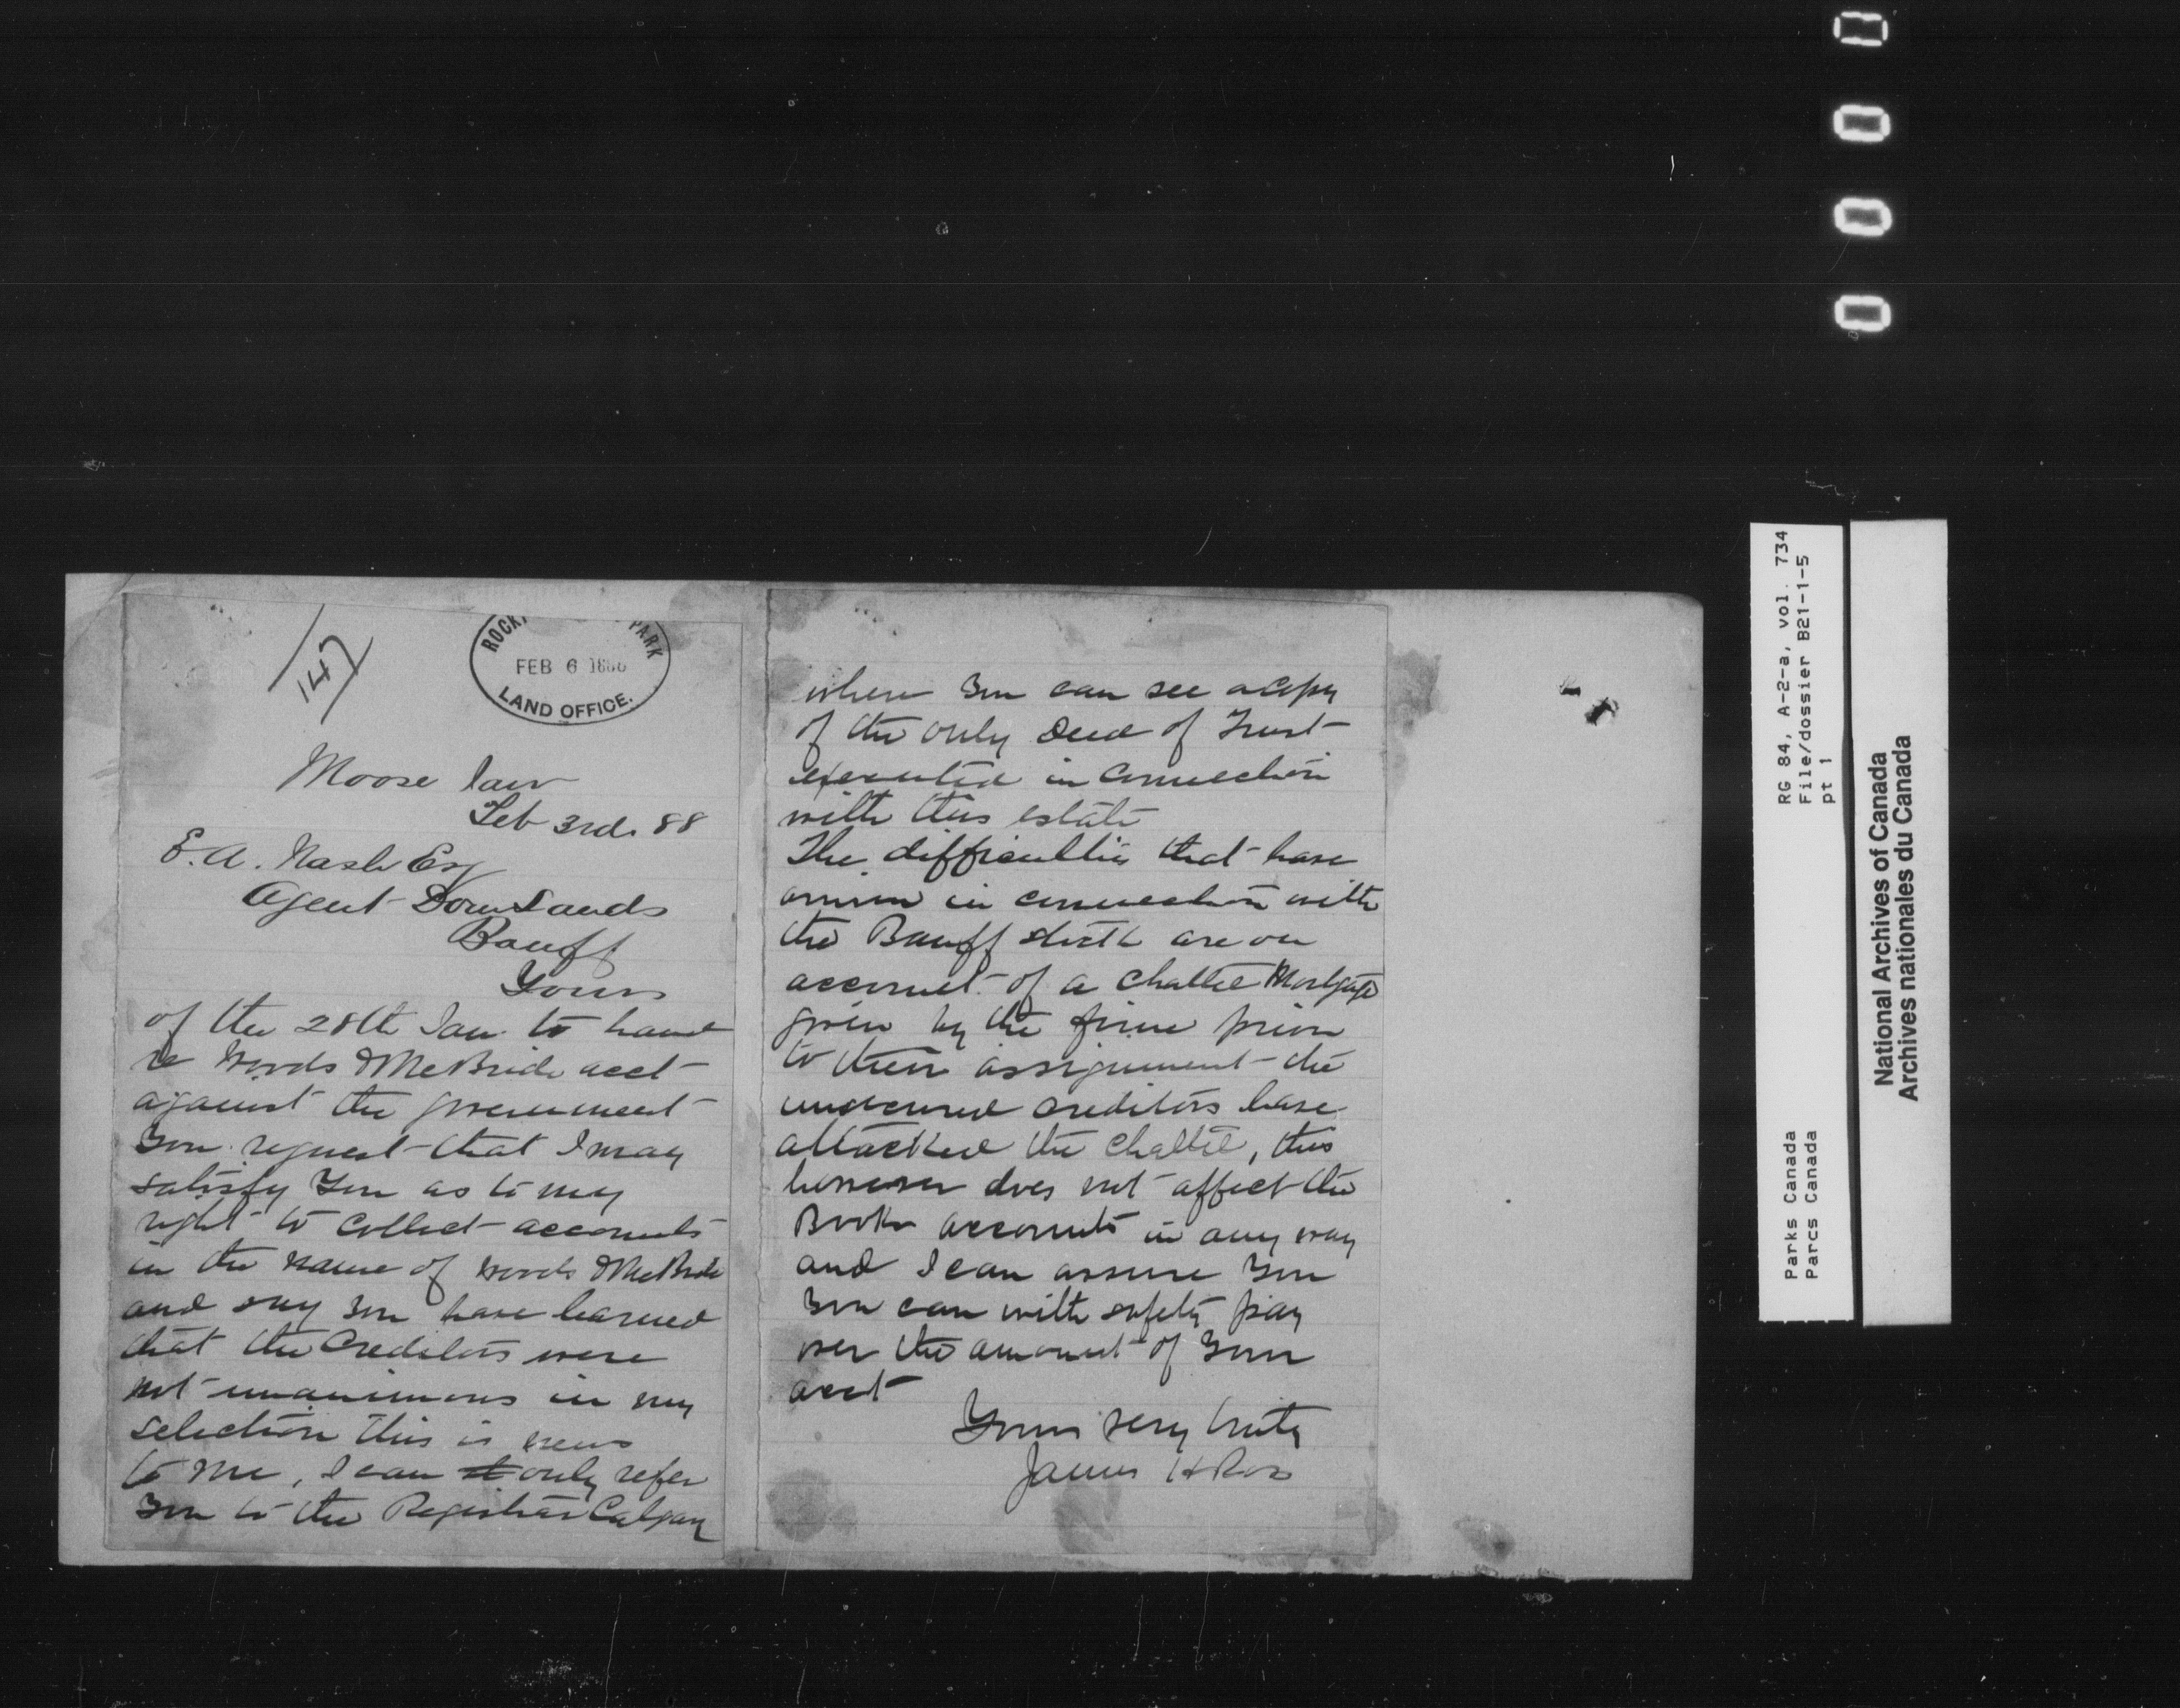 0 0 0 0
147
ROCKY PARK
FEB 6 1888
LAND OFFICE.
Moose Jaw
Feb 3rd. 88
E. A. Nash Esq
Agent Dom Lands
Banff
Yours
of the 28th Jan. to hand
re Woods & McBride acct
against the government
You request that I may
satisfy You as to my
right to collect accounts
in the name of Woods & McBride
and say you have learned
that the Creditors were
not unanimous in my
selection this is news
to me, I can only refer
you to the Registrar Calgary
where you can see a copy
of the only Deed of Trust
executed in connection
with this estate
The difficulties that have
arisen in connection with
the Banff stock are on
account of a Chattel Mortgage
given by the firm prior
to their assignment the
unsecured creditors have
attacked the Chattel, this
however does not affect the
Book accounts in any way
and I can assure you
you can with safety pay
over the amount of your
acct
Yours very truly
James H Ross
RG 84, A-2-a, vol. 734
File/dossier B21-1-5
pt 1
Parks Canada
Parcs Canada
National Archives of Canada
Archives nationales du Canada